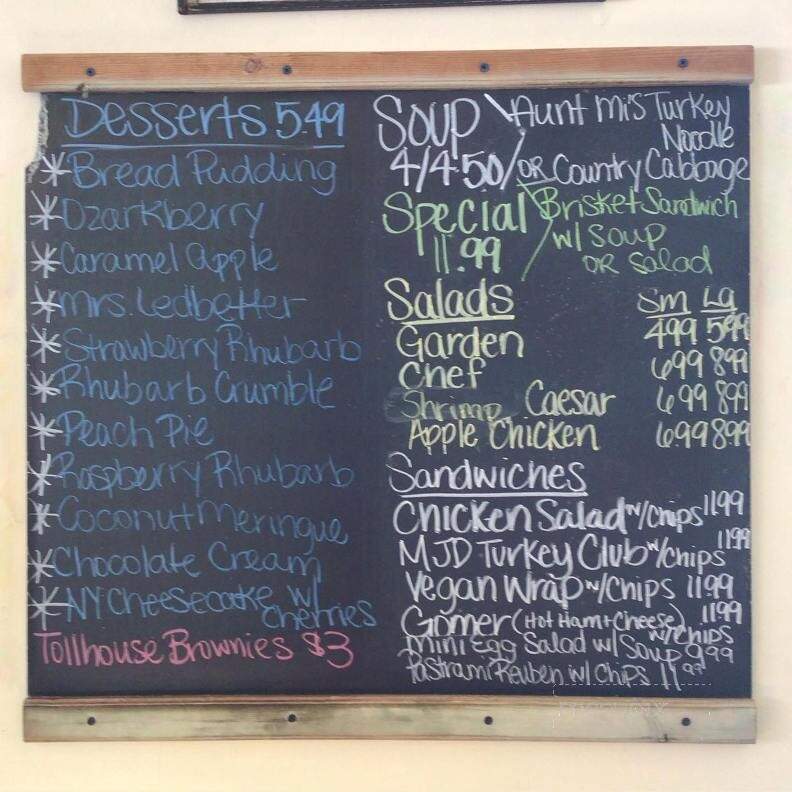 Desserts 5.49
* Bread Pudding
* Ozarkberry
* Caramel Apple
* Mrs. Ledbetter
* Strawberry Rhubarb
* Rhubarb Crumble
* Peach Pie
* Raspberry Rhubarb
* Coconut Meringue
* Chocolate Cream
* NY Cheesecake w/
cherries
Tollhouse Brownies $3
Soup Aunt Mi's Turkey
Noodle
4/4.50 OR Country Cabbage
Special Brisket Sandwich
11.99 w/ Soup
OR Salad
Salads Sm La
Garden 499 599
Chef 699 899
Shrimp Caesar 699 899
Apple Chicken 699 899
Sandwiches
Chicken Salad w/chips 1199
MJD Turkey Club w/chips 1199
Vegan Wrap w/chips 11.99
Gomer (Hot Ham + Cheese) w/chips 1199
Mini Egg Salad w/ Soup 9.99
Pastrami Reuben w/ Chips 11.99